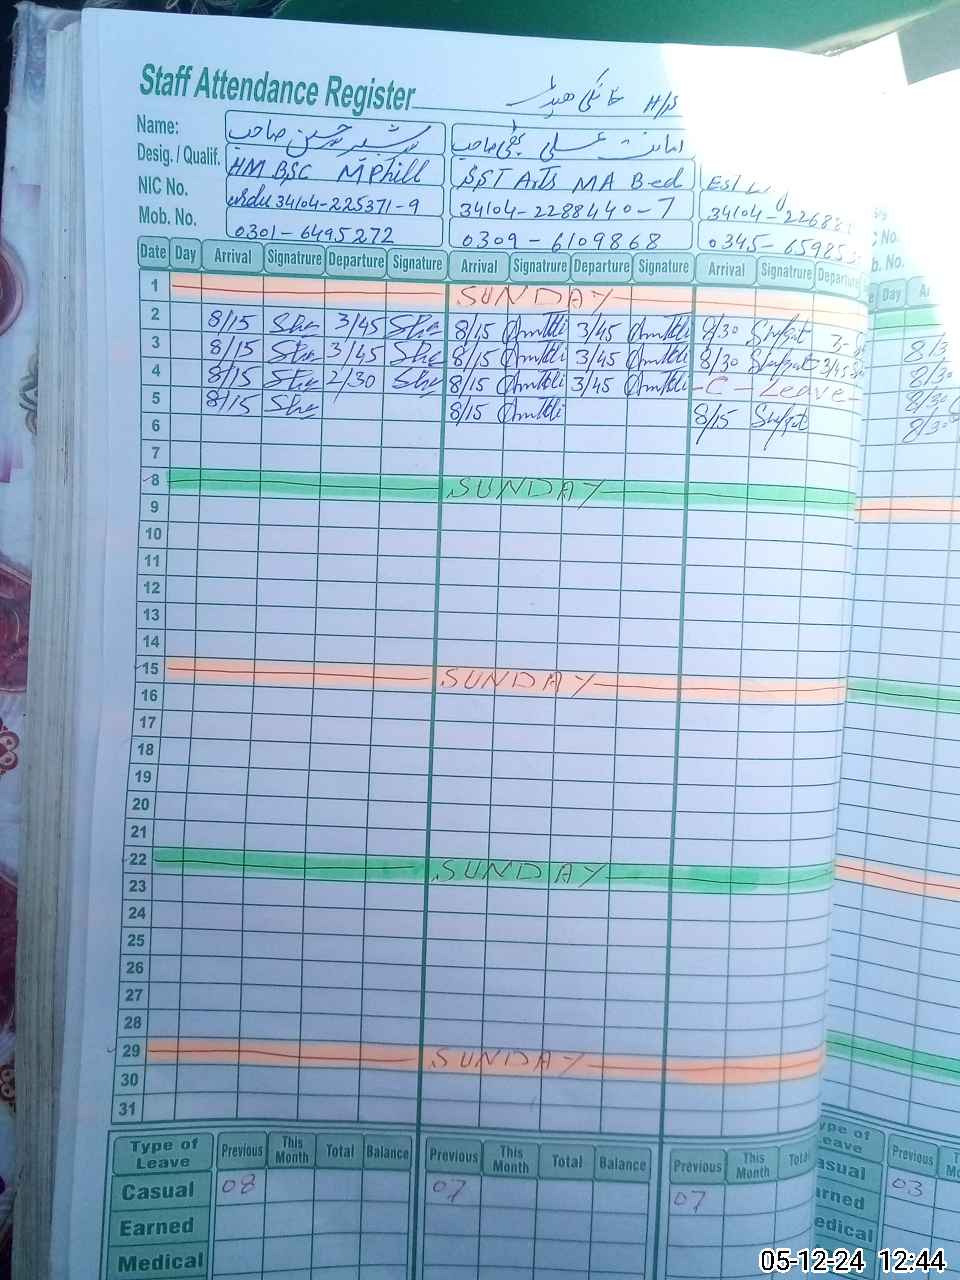 Staff Attendance Register H/S
Name: امانت علی صاحب
Desig. / Qualif. HM BSC MPhill SST Arts MA B-ed EST
NIC No. Urdu 34104-225371-9 34104-2288440-7 34104-22688
Mob. No. 0301-6495272 0309-6109868 0345-65985
Date Day Arrival Signatrure Departure Signature Arrival Signatrure Departure Signature Arrival Signatrure Departure
1 SUNDAY
2 8/15 She 3/45 She 8/15 3/45 8/30 3-
3 8/15 She 3/45 She 8/15 3/45 8/30 3/45
4 8/15 She 2/30 She 8/15 3/45 -C- Leave-
5 8/15 She 8/15 8/15
6
7
8 SUNDAY
9
10
11
12
13
14
15 SUNDAY
16
17
18
19
20
21
22 SUNDAY
23
24
25
26
27
28
29 SUNDAY
30
31
Type of Leave Previous This Month Total Balance Previous This Month Total Balance Previous This Month Total
Casual 08 07 07
Earned
Medical
No.
b. No.
Day
8/3
8/30
8/30
8/30
Previous
03
05-12-24 12:44